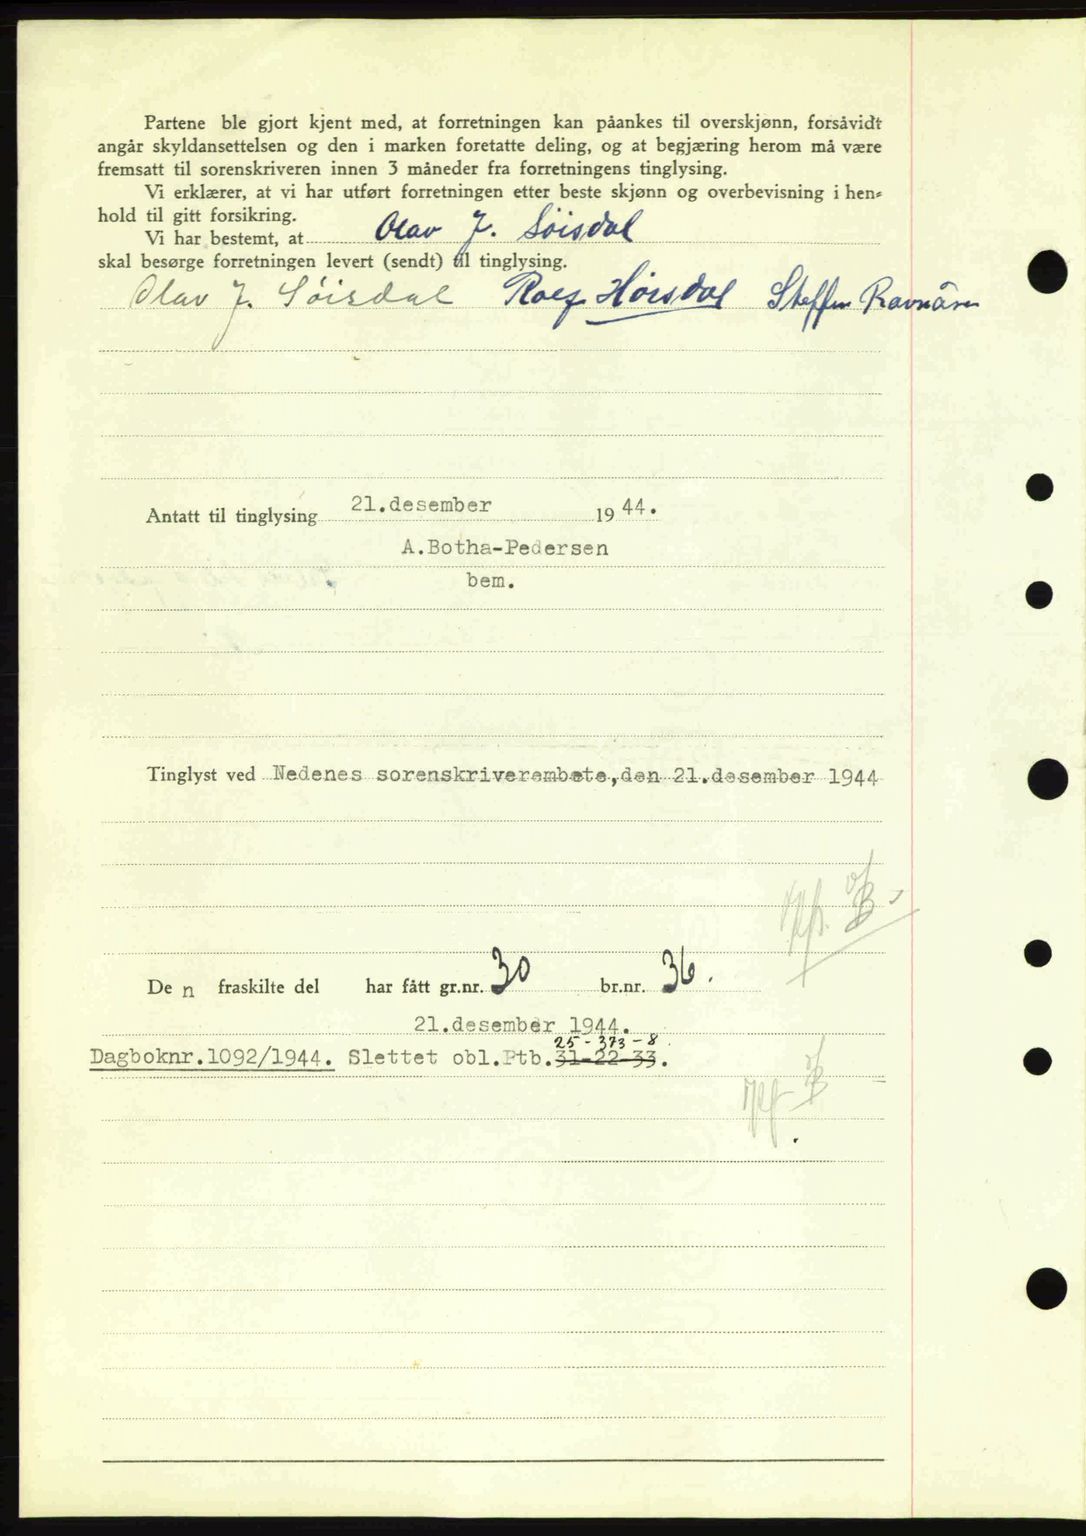 Partene ble gjort kjent med, at forretningen kan påankes til overskjønn, forsåvidt
angår skyldansettelsen og den i marken foretatte deling, og at begjæring herom må være
fremsatt til sorenskriveren innen 3 måneder fra forretningens tinglysing.
Vi erklærer, at vi har utført forretningen etter beste skjønn og overbevisning i hen-
hold til gitt forsikring.
Vi har bestemt, at Olav J. Søisdal
skal besørge forretningen levert (sendt) til tinglysing.
Olav J. Søisdal Rolf Hørsdal Steffen Ravnåsen
Antatt til tinglysing 21.desember 1944.
A.Botha-Pedersen
bem.
Tinglyst ved Nedenes sorenskriverembete,den 21.desember 1944
Den fraskilte del har fått gr.nr. 30 br.nr. 36.
21.desember 1944.
25-373-8.
Dagboknr.1092/1944. Slettet obl.Ptb.31-22-33.